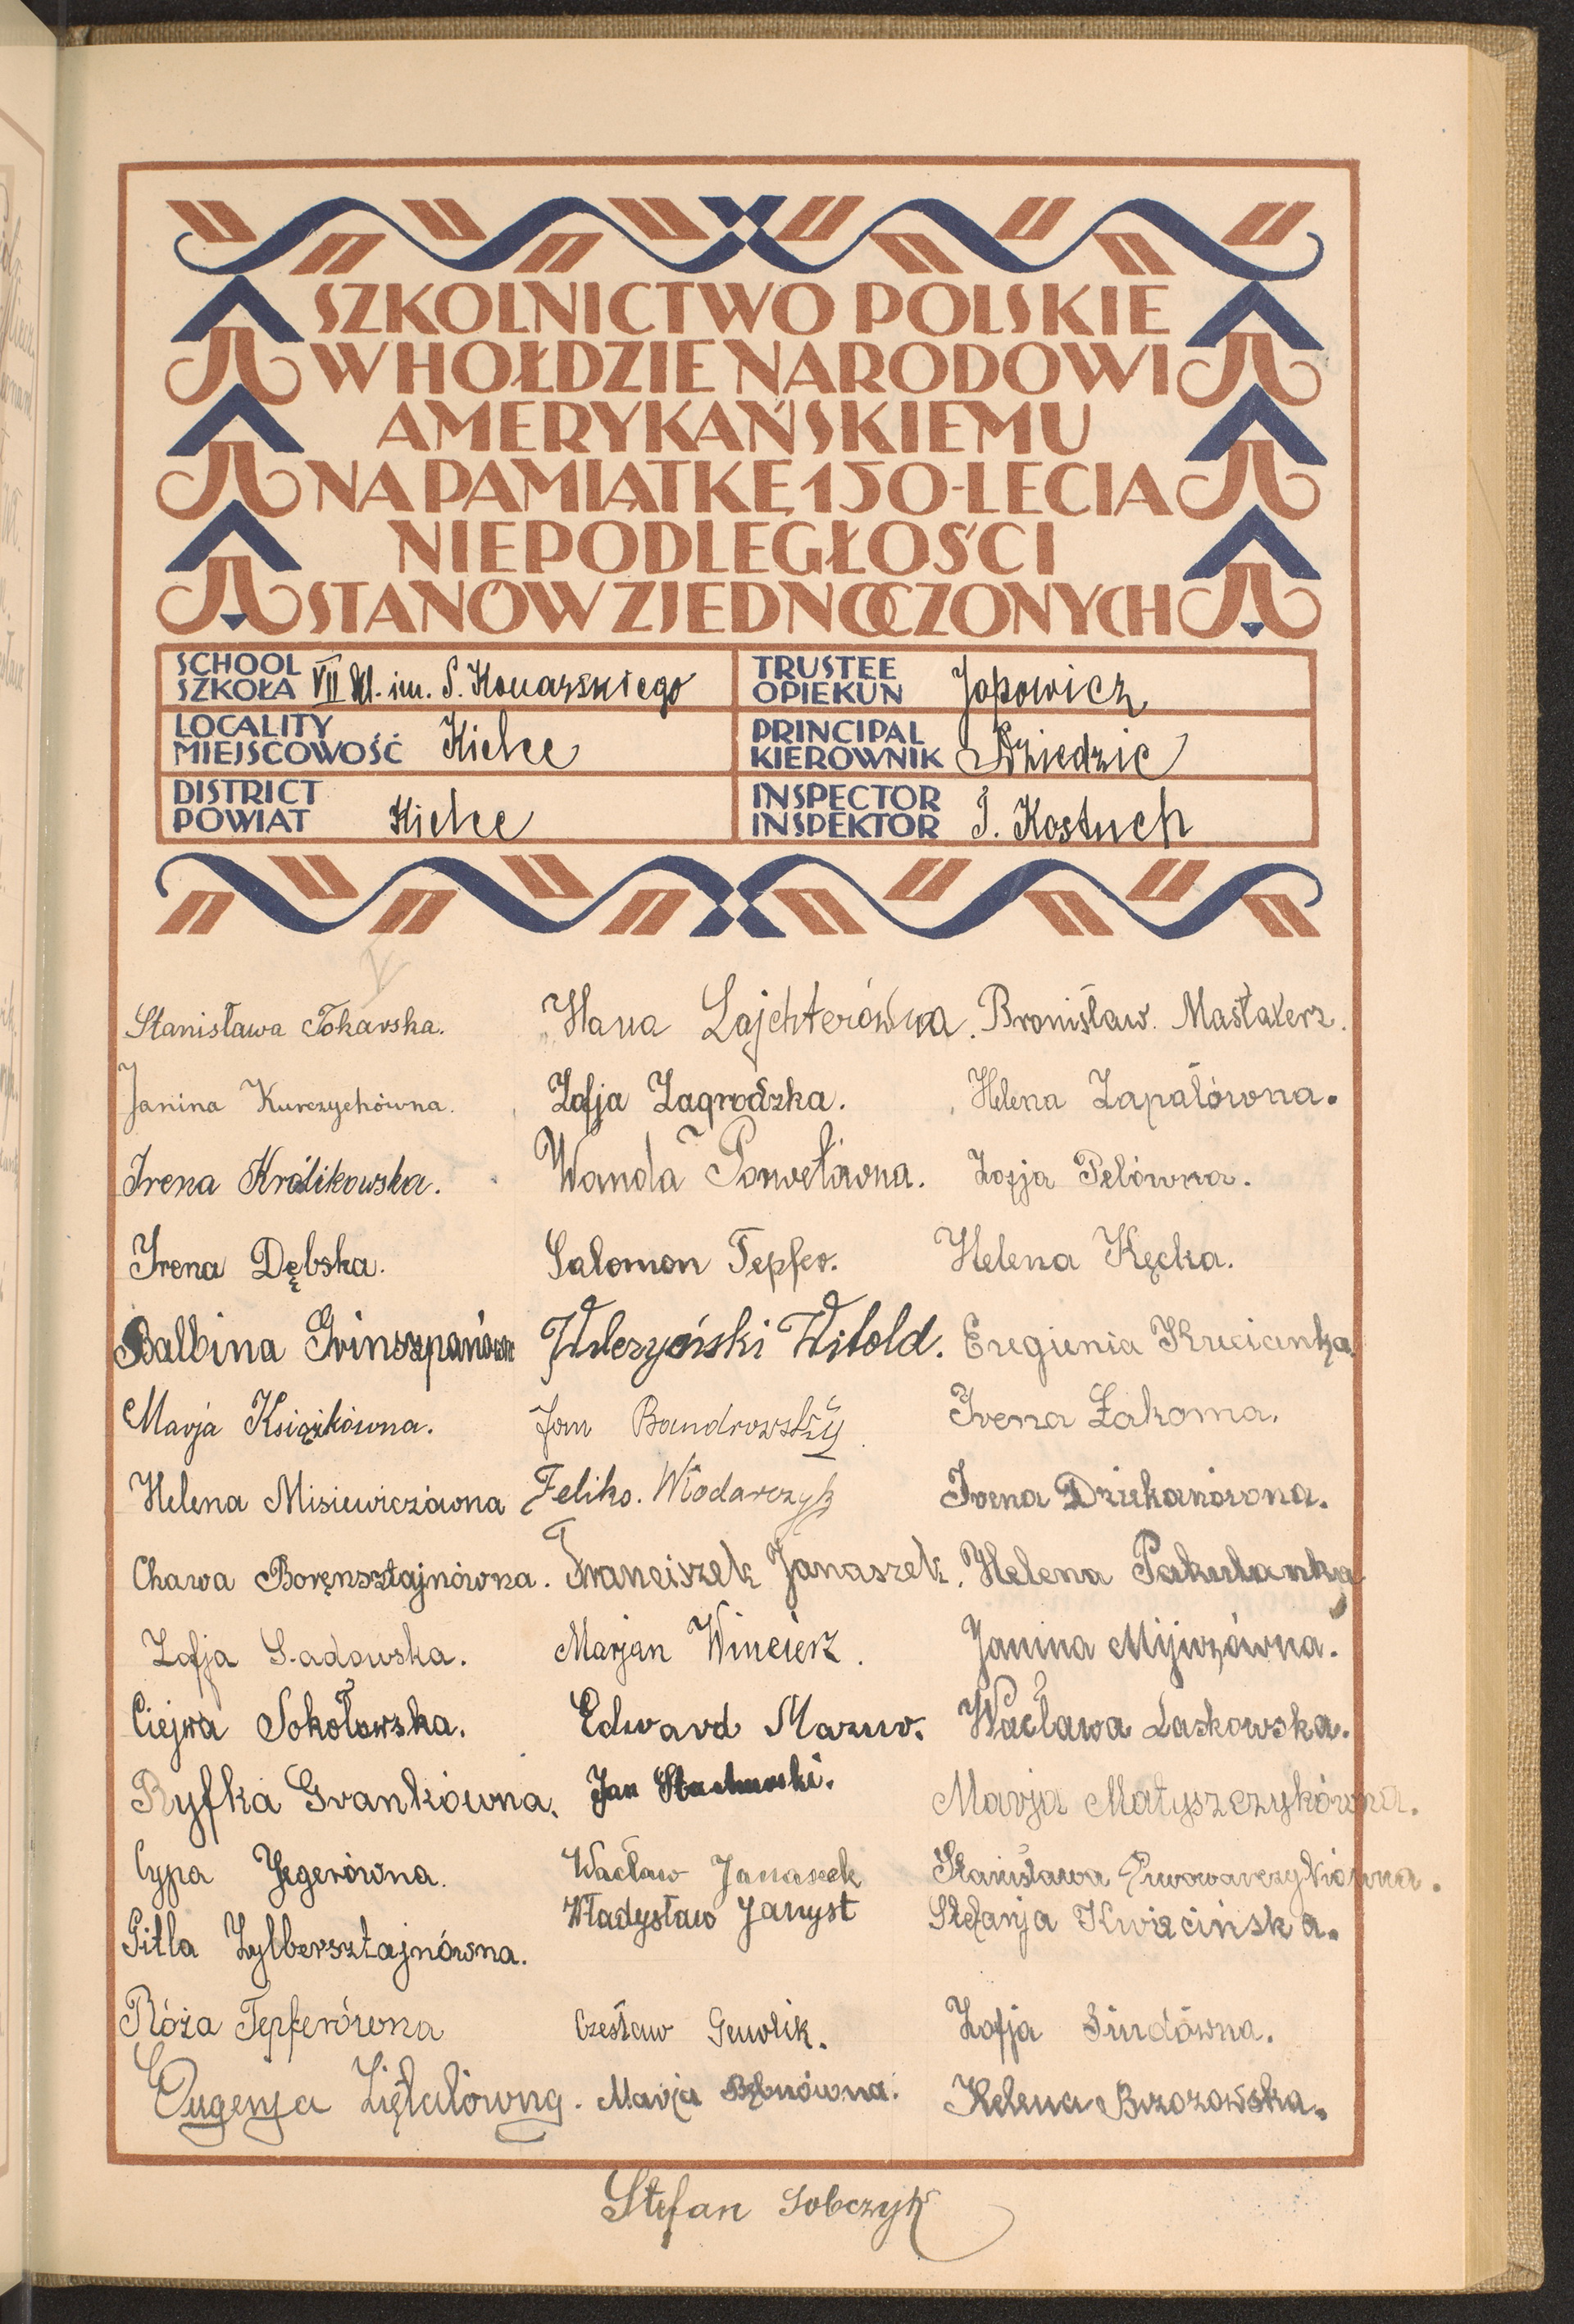 SZKOLNICTWO POLSKIE
W HOŁDZIE NARODOWI
AMERYKAŃSKIEMU
NA PAMIĄTKĘ 150-LECIA
NIEPODLEGŁOŚCI
STANÓW ZJEDNOCZONYCH
SCHOOL
SZKOŁA VII kl. im. S. Konarskiego
TRUSTEE
OPIEKUN Japowicz
LOCALITY
MIEJSCOWOŚĆ Kielce
PRINCIPAL
KIEROWNIK Dziedzic
DISTRICT
POWIAT Kielce
INSPECTOR
INSPEKTOR J. Kostuch
Stanisława Tokarska.
Janina Kurczychówna.
Irena Królikowska.
Irena Dębska.
Balbina Grinszpanówna
Marja Książkówna.
Helena Misiewiczówna
Chawa Borensztajnówna.
Zofja Sadowska.
Ciejwa Sokołowska.
Ryfka Grankówna.
Cypa Jegerówna.
Gitla Zylbersztajnówna.
Róża Tepferówna
Eugenja Ziętalówna.
Hana Lajchterówna.
Zofja Zagrodzka.
Wanda Pawełówna.
Salomon Tepfer.
Wilczyński Witold.
Jan Bandrowski
Feliks. Włodarczyk
Franciszek Janaszek.
Marjan Wincierz.
Edward Mazur.
Jan Stachurski.
Wacław Janaszek
Władysław Janyst
Czesław Gawlik.
Marja Bębnówna.
Bronisław. Mastalerz.
Helena Zapałówna.
Zofja Pelówna.
Helena Kęcka.
Eugienia Krucianka.
Irena Łakoma.
Irena Dziekanówna.
Helena Pakulanka
Janina Mijwzówna.
Wacława Laskowska.
Marja Matyszczykówna.
Stanisława Piwowarczykówna.
Stefanja Kwiecińska.
Zofja Sindówna.
Helena Brzozowska.
Stefan Sobczyk